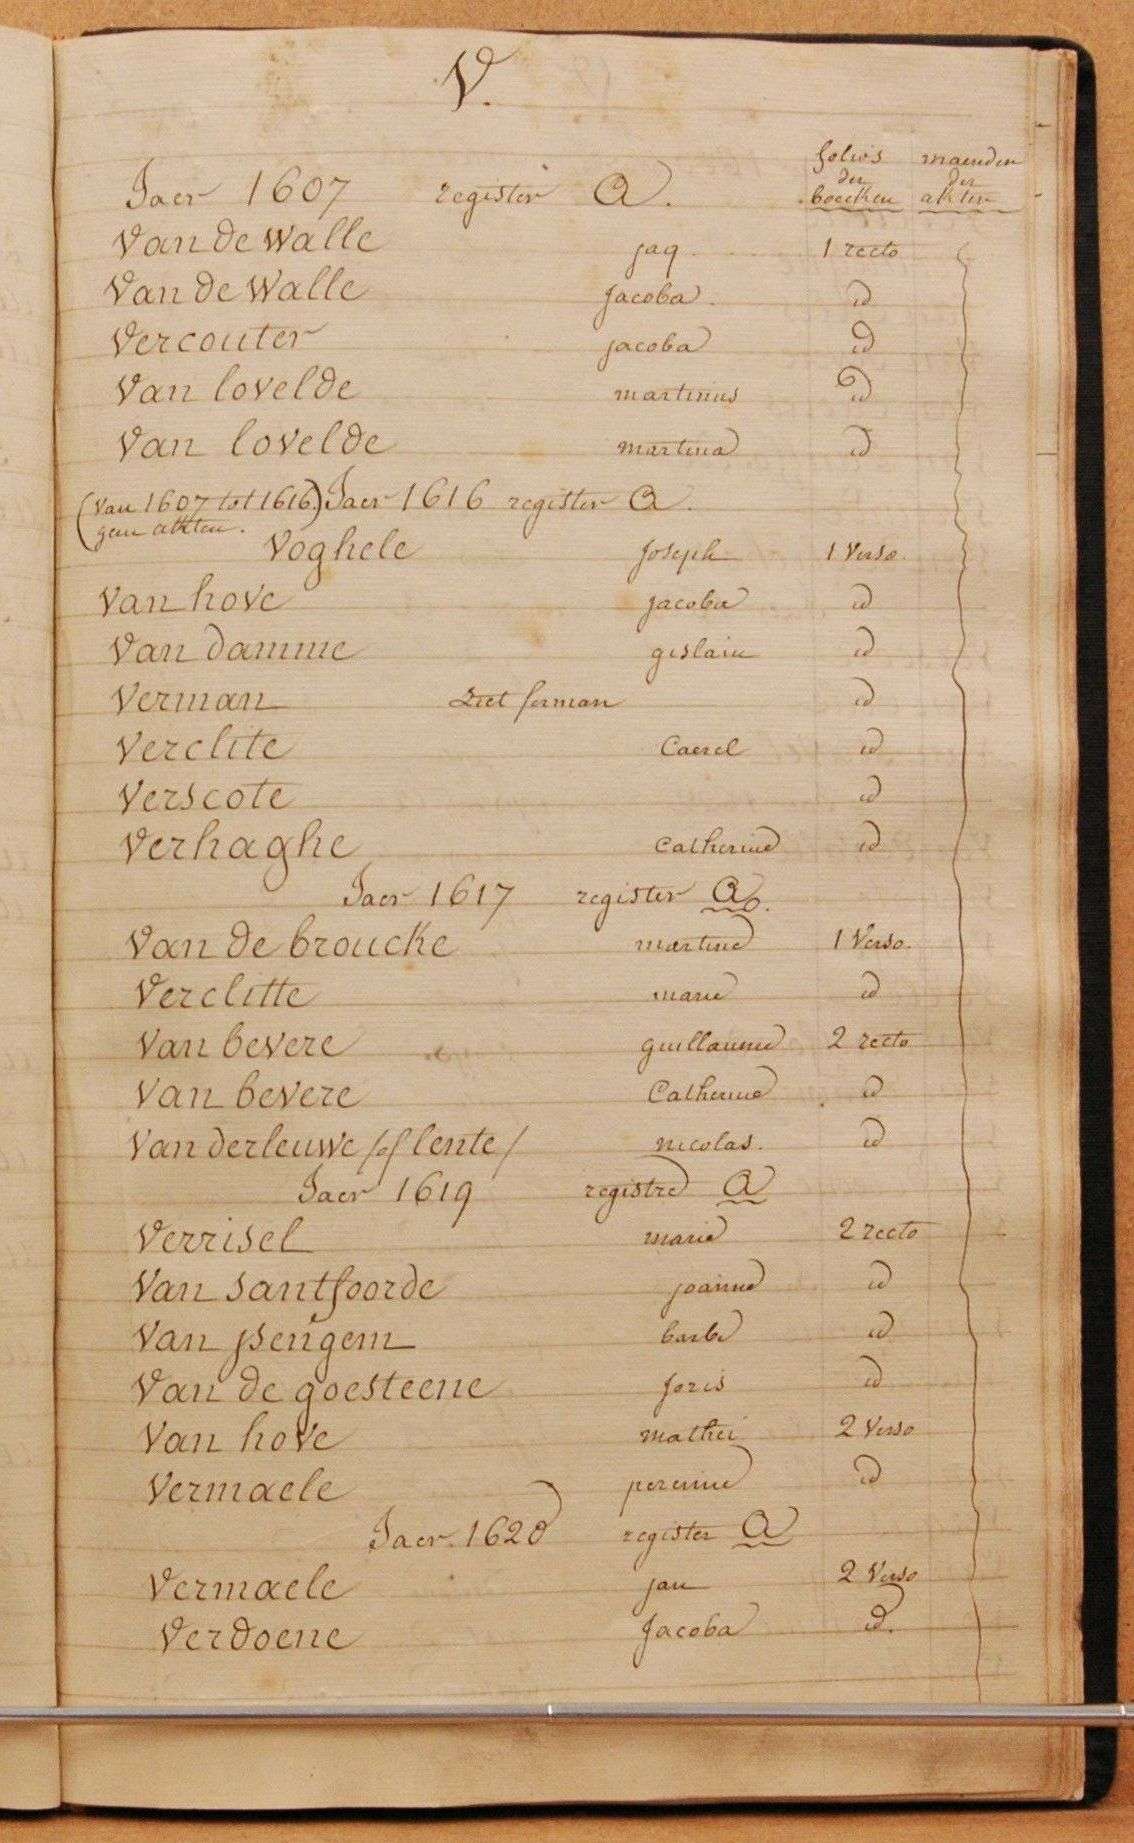 V.
folios maenden
der der
Jaer 1607 register A. boecken akten
Van de Walle jaq 1 recto
Van de Walle Jacoba id
Vercouter jacoba id
Van lovelde martinus id
Van lovelde martina id
(Van 1607 tot 1616) Jaer 1616 register A.
geen akten.
Voghele Joseph 1 Verso
Van hove jacoba id
Van damme gislain id
Verman Ziet ferman id
Verclite Caerel id
Verscote id
Verhaghe Catherine id
Jaer 1617 register A.
Van de broucke martine 1 Verso.
Verclitte marie id
Van bevere guillaume 2 recto
Van bevere Catherine id
Van derleuwe /of lente/ nicolas. id
Jaer 1619 registre A
Verrisel marie 2 recto
Van santfoorde joanne id
Van psengem barbe id
Van de goesteene Joris id
Van hove mathei 2 Verso
Vermaele perenne id
Jaer. 1620 register A
Vermaele jan 2 Verso
Verdoene Jacoba id.